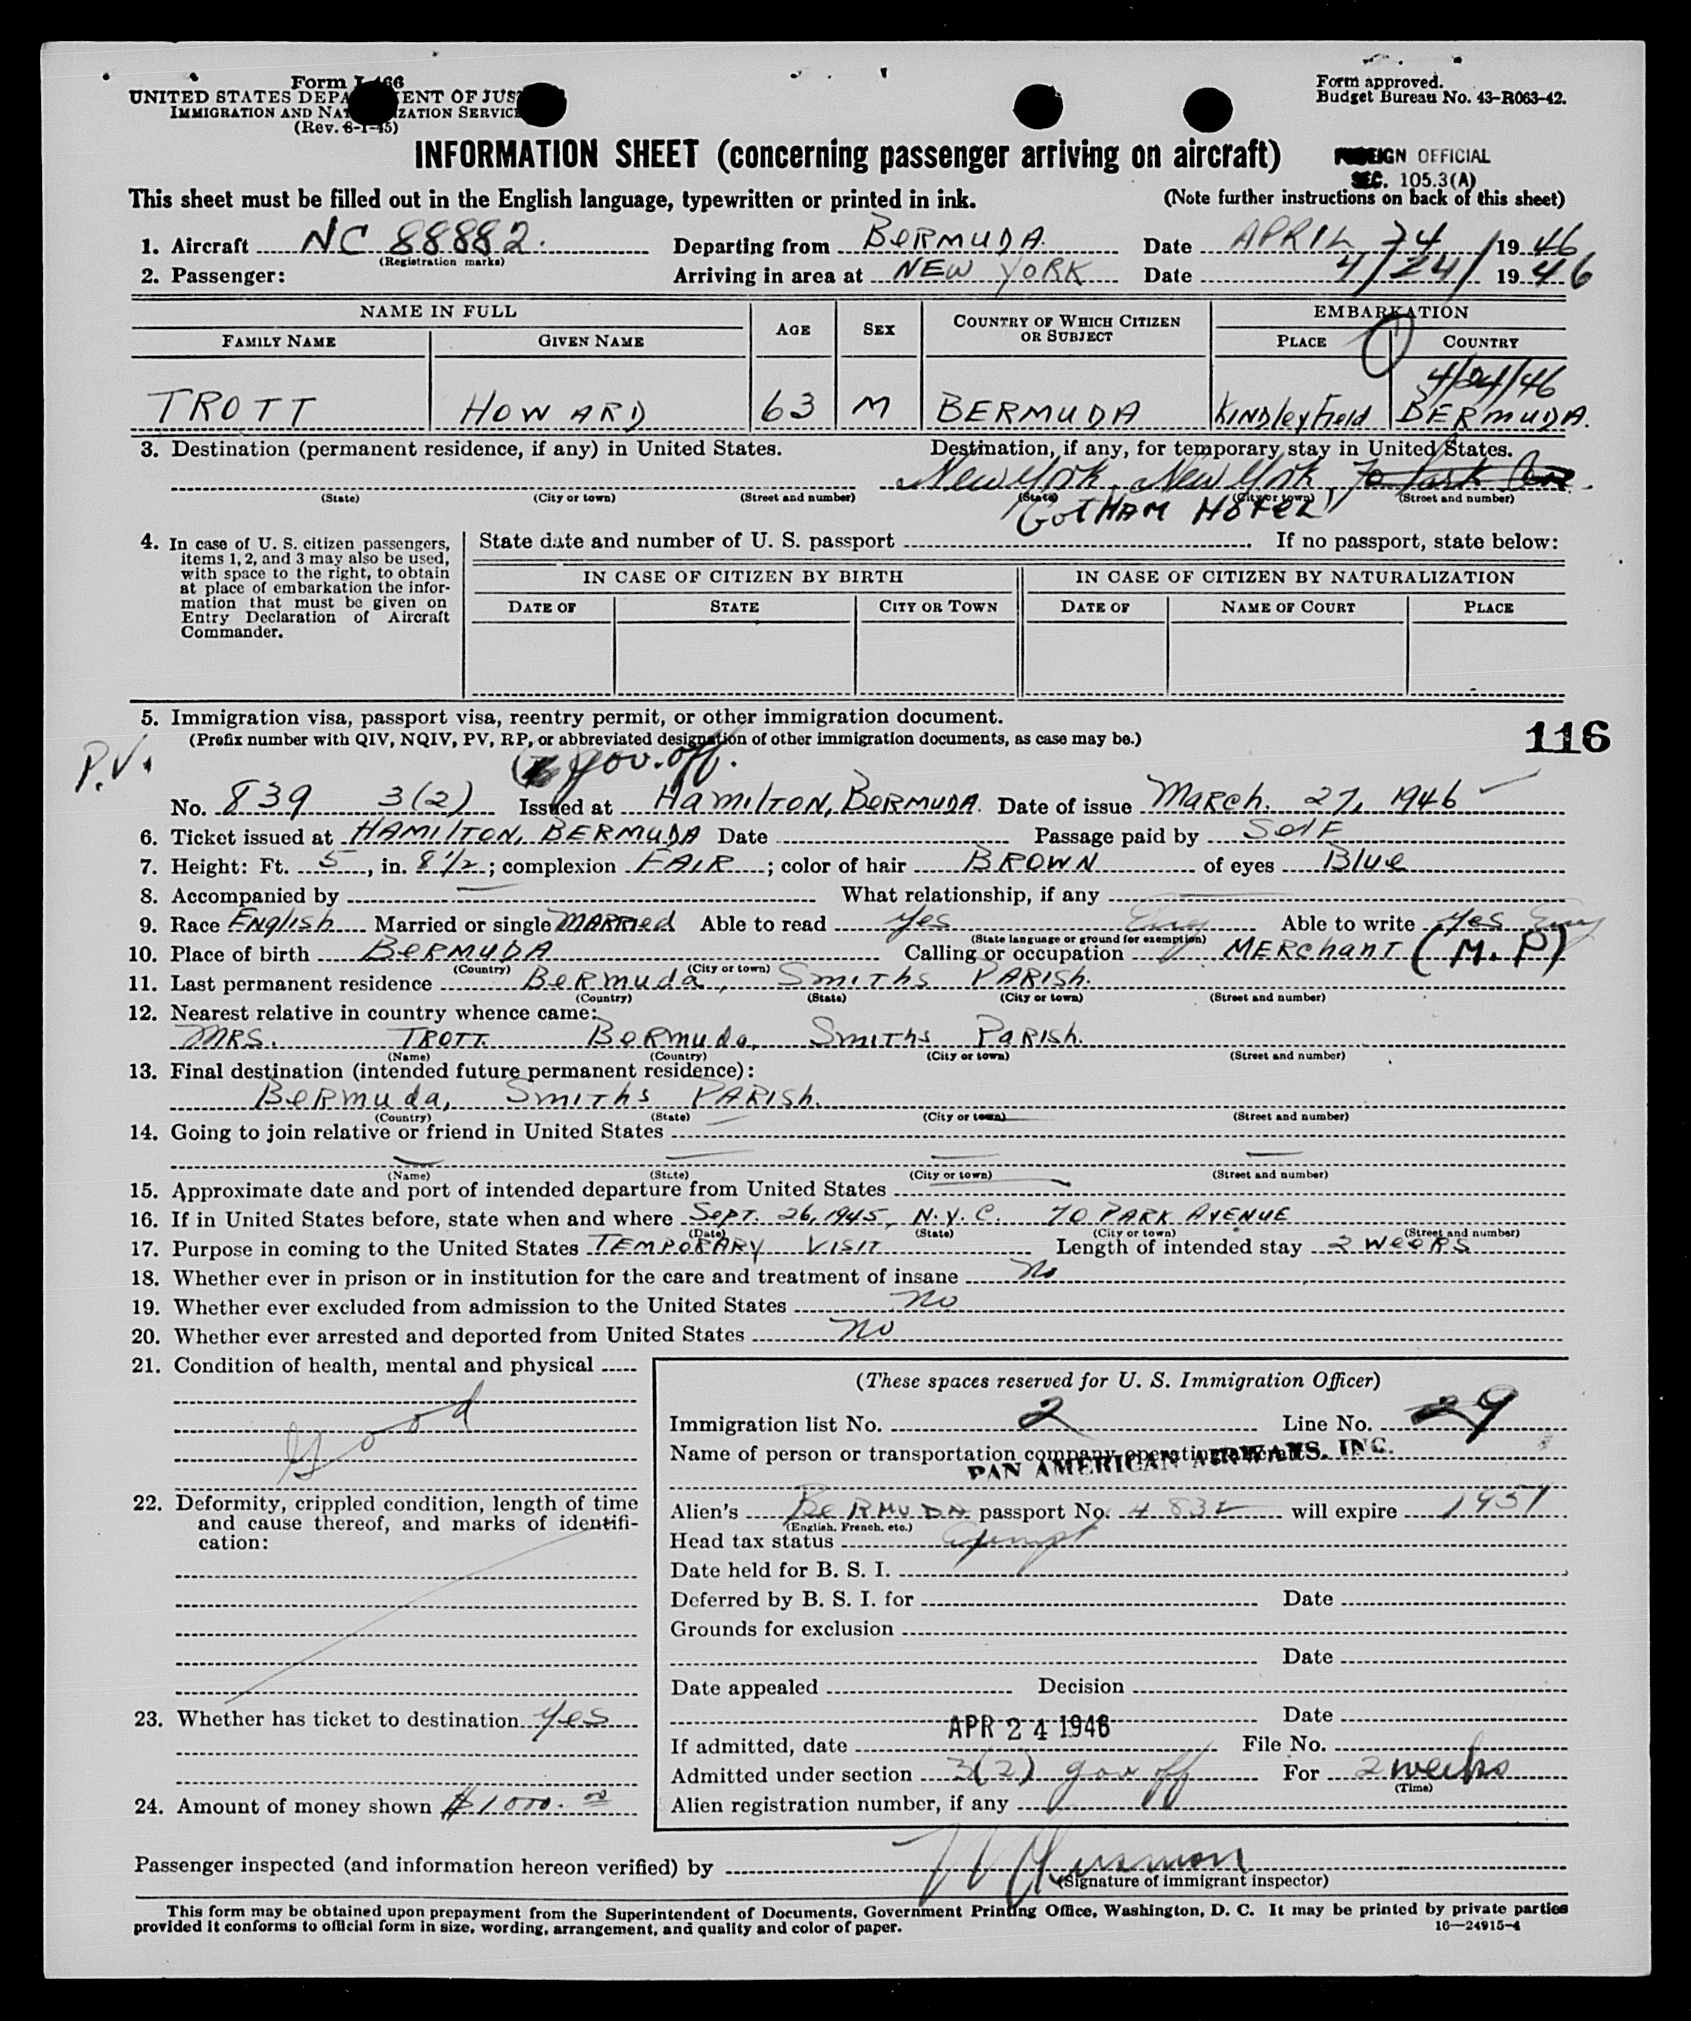 Form I-466
UNITED STATES DEPARTMENT OF JUSTICE
IMMIGRATION AND NATURALIZATION SERVICE
(Rev. 6-1-45)
Form approved.
Budget Bureau No. 43-R063-42.
INFORMATION SHEET (concerning passenger arriving on aircraft)
FOREIGN OFFICIAL
SEC. 105.3(A)
This sheet must be filled out in the English language, typewritten or printed in ink. (Note further instructions on back of this sheet)
1. Aircraft NC 88882. Departing from BERMUDA. Date APRIL 24 / 1946
(Registration marks)
2. Passenger: Arriving in area at NEW YORK Date 4/24/ 1946
NAME IN FULL AGE SEX COUNTRY OF WHICH CITIZEN OR SUBJECT EMBARKATION
FAMILY NAME GIVEN NAME PLACE COUNTRY
4/24/46
TROTT HOWARD 63 M BERMUDA Kindley Field BERMUDA.
3. Destination (permanent residence, if any) in United States. Destination, if any, for temporary stay in United States.
New York, New York 70 Park Ave.
(State) (City or town) (Street and number) (State) (City or town) (Street and number)
GOTHAM HOTEL
4. In case of U. S. citizen passengers, items 1, 2, and 3 may also be used, with space to the right, to obtain at place of embarkation the information that must be given on Entry Declaration of Aircraft Commander.
State date and number of U. S. passport If no passport, state below:
IN CASE OF CITIZEN BY BIRTH IN CASE OF CITIZEN BY NATURALIZATION
DATE OF STATE CITY OR TOWN DATE OF NAME OF COURT PLACE
5. Immigration visa, passport visa, reentry permit, or other immigration document.
116
(Prefix number with QIV, NQIV, PV, RP, or abbreviated designation of other immigration documents, as case may be.)
P.V.
gov. off.
No. 839 3(2) Issued at Hamilton, Bermuda. Date of issue March. 27, 1946
6. Ticket issued at HAMILTON, BERMUDA Date Passage paid by Self
7. Height: Ft. 5, in. 8 1/2; complexion FAIR; color of hair BROWN of eyes Blue
8. Accompanied by — What relationship, if any —
9. Race English Married or single MARRIED Able to read Yes Eng Able to write Yes Eng
(State language or ground for exemption)
10. Place of birth BERMUDA Calling or occupation MERCHANT (M.P)
(Country) (City or town)
11. Last permanent residence Bermuda, Smiths PARISH.
(Country) (State) (City or town) (Street and number)
12. Nearest relative in country whence came:
MRS. TROTT Bermuda, Smiths Parish.
(Name) (Country) (City or town) (Street and number)
13. Final destination (intended future permanent residence):
Bermuda, Smiths PARISH.
(Country) (State) (City or town) (Street and number)
14. Going to join relative or friend in United States
(Name) (State) (City or town) (Street and number)
15. Approximate date and port of intended departure from United States
16. If in United States before, state when and where Sept. 26, 1945, N.Y.C. 70 PARK AVENUE
(Date) (State) (City or town) (Street and number)
17. Purpose in coming to the United States TEMPORARY VISIT Length of intended stay 2 weeks
18. Whether ever in prison or in institution for the care and treatment of insane No
19. Whether ever excluded from admission to the United States No
20. Whether ever arrested and deported from United States No
21. Condition of health, mental and physical
Good
22. Deformity, crippled condition, length of time and cause thereof, and marks of identification:
23. Whether has ticket to destination Yes
24. Amount of money shown $1000.00
(These spaces reserved for U. S. Immigration Officer)
Immigration list No. 2 Line No. 29
Name of person or transportation company operating aircraft
PAN AMERICAN AIRWAYS, INC.
Alien's BERMUDA passport No. 4832 will expire 1951
(English, French, etc.)
Head tax status exempt
Date held for B. S. I.
Deferred by B. S. I. for Date
Grounds for exclusion
Date
Date appealed Decision
Date
If admitted, date APR 24 1946 File No.
Admitted under section 3(2) gov off For 2 weeks
(Time)
Alien registration number, if any
Passenger inspected (and information hereon verified) by
(Signature of immigrant inspector)
This form may be obtained upon prepayment from the Superintendent of Documents, Government Printing Office, Washington, D. C. It may be printed by private parties
provided it conforms to official form in size, wording, arrangement, and quality and color of paper. 16—24915-4